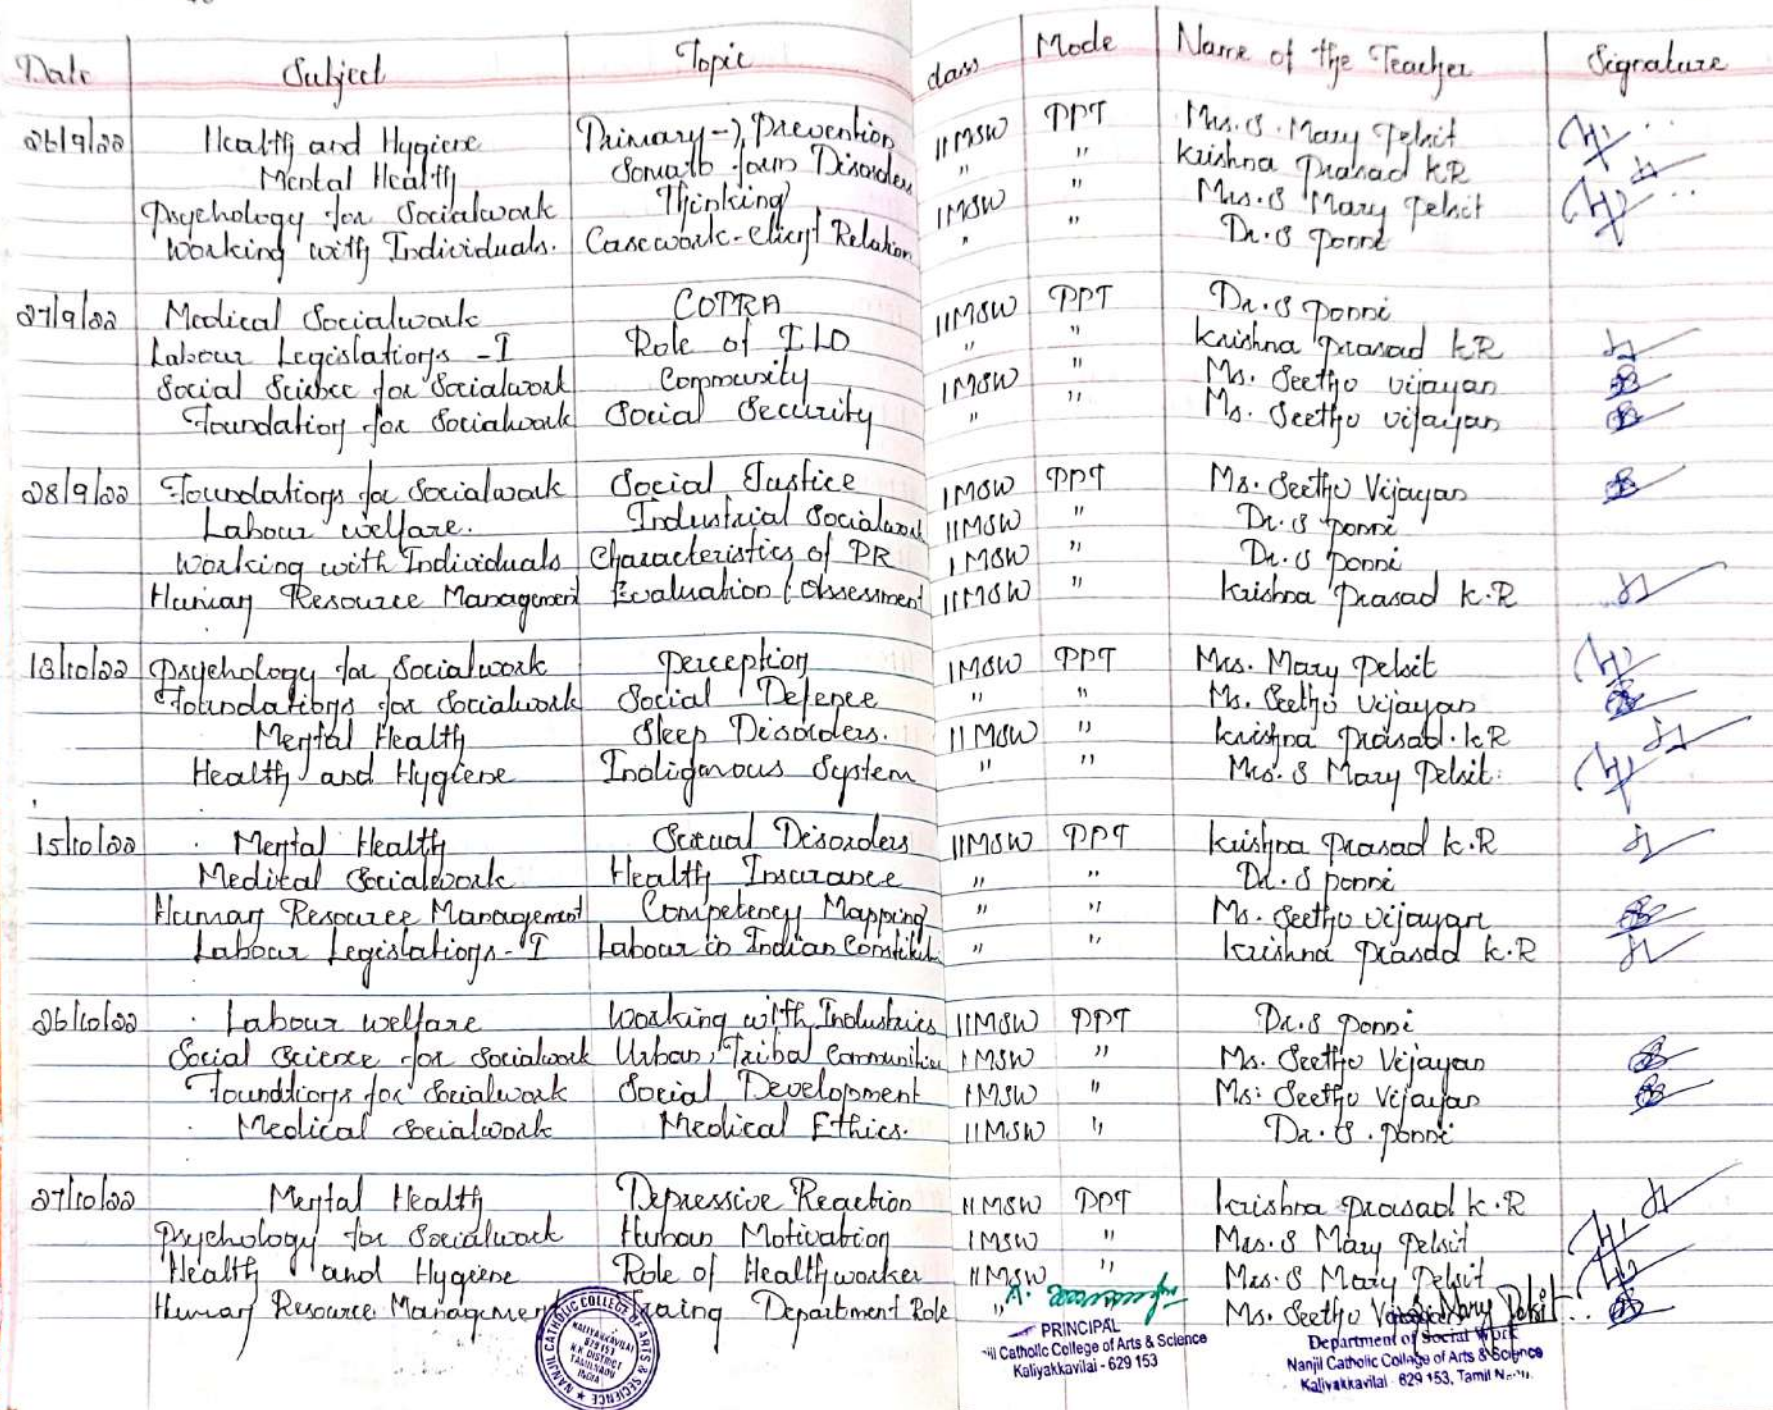 Date Subject Topic class Mode Name of the Teacher Signature
26/9/22 Health and Hygiene Primary -) Prevention II MSW PPT Mrs. S. Mary Pelsit
Mental Health Somato form Disorders " " Krishna Prasad KR
Psychology for Socialwork Thinking I MSW " Mrs. S Mary Pelsit
Working with Individuals. Casework-client Relation " " Dr. S Ponni
27/9/22 Medical Socialwork COPRA II MSW PPT Dr. S Ponni
Labour Legislations - I Role of ILO " " Krishna Prasad KR
Social Science for Socialwork Community I MSW " Ms. Seethu Vijayan
Foundation for Socialwork Social Security " " Ms. Seethu Vijayan
28/9/22 Foundations for Socialwork Social Justice I MSW PPT Ms. Seethu Vijayan
Labour welfare. Industrial Socialwork II MSW " Dr. S Ponni
Working with Individuals Characteristics of PR I MSW " Dr. S Ponni
Human Resource Management Evaluation / Assessment II MSW " Krishna Prasad K.R
13/10/22 Psychology for Socialwork Perception I MSW PPT Mrs. Mary Pelsit
Foundations for Socialwork Social Defence " " Ms. Seethu Vijayan
Mental Health Sleep Disorders. II MSW " Krishna Prasad. KR
Health and Hygiene Indigenous System " " Mrs. S Mary Pelsit.
15/10/22 Mental Health Sexual Disorders II MSW PPT Krishna Prasad K.R
Medical Socialwork Health Insurance " " Dr. S Ponni
Human Resource Management Competency Mapping " " Ms. Seethu Vijayan
Labour Legislations - I Labour in Indian " " Krishna Prasad K.R
26/10/22 Labour welfare Working with Industries II MSW PPT Dr. S Ponni
Social Science for Socialwork Urban, Tribal Communities I MSW " Ms. Seethu Vijayan
Foundtions for Socialwork Social Development I MSW " Ms: Seethu Vijayan
Medical Socialwork Medical Ethics. II MSW " Dr. S. Ponni
27/10/22 Mental Health Depressive Reaction II MSW PPT Krishna Prasad K.R
Psychology for Socialwork Human Motivation I MSW " Mrs. S Mary Pelsit
Health and Hygiene Role of Healthworker II MSW " Mrs. S Mary Pelsit
Human Resource Management Department Role " Ms. Seethu
Mary Pelsit
NANJIL CATHOLIC COLLEGE OF ARTS & SCIENCE
KALIYAKKAVILAI
629 153
K.K DISTRICT
TAMILNADU
INDIA
PRINCIPAL
Catholic College of Arts & Science
Kaliyakkavilai - 629 153
Department of Social Work
Nanjil Catholic College of Arts & Science
Kaliyakkavilai - 629 153, Tamil